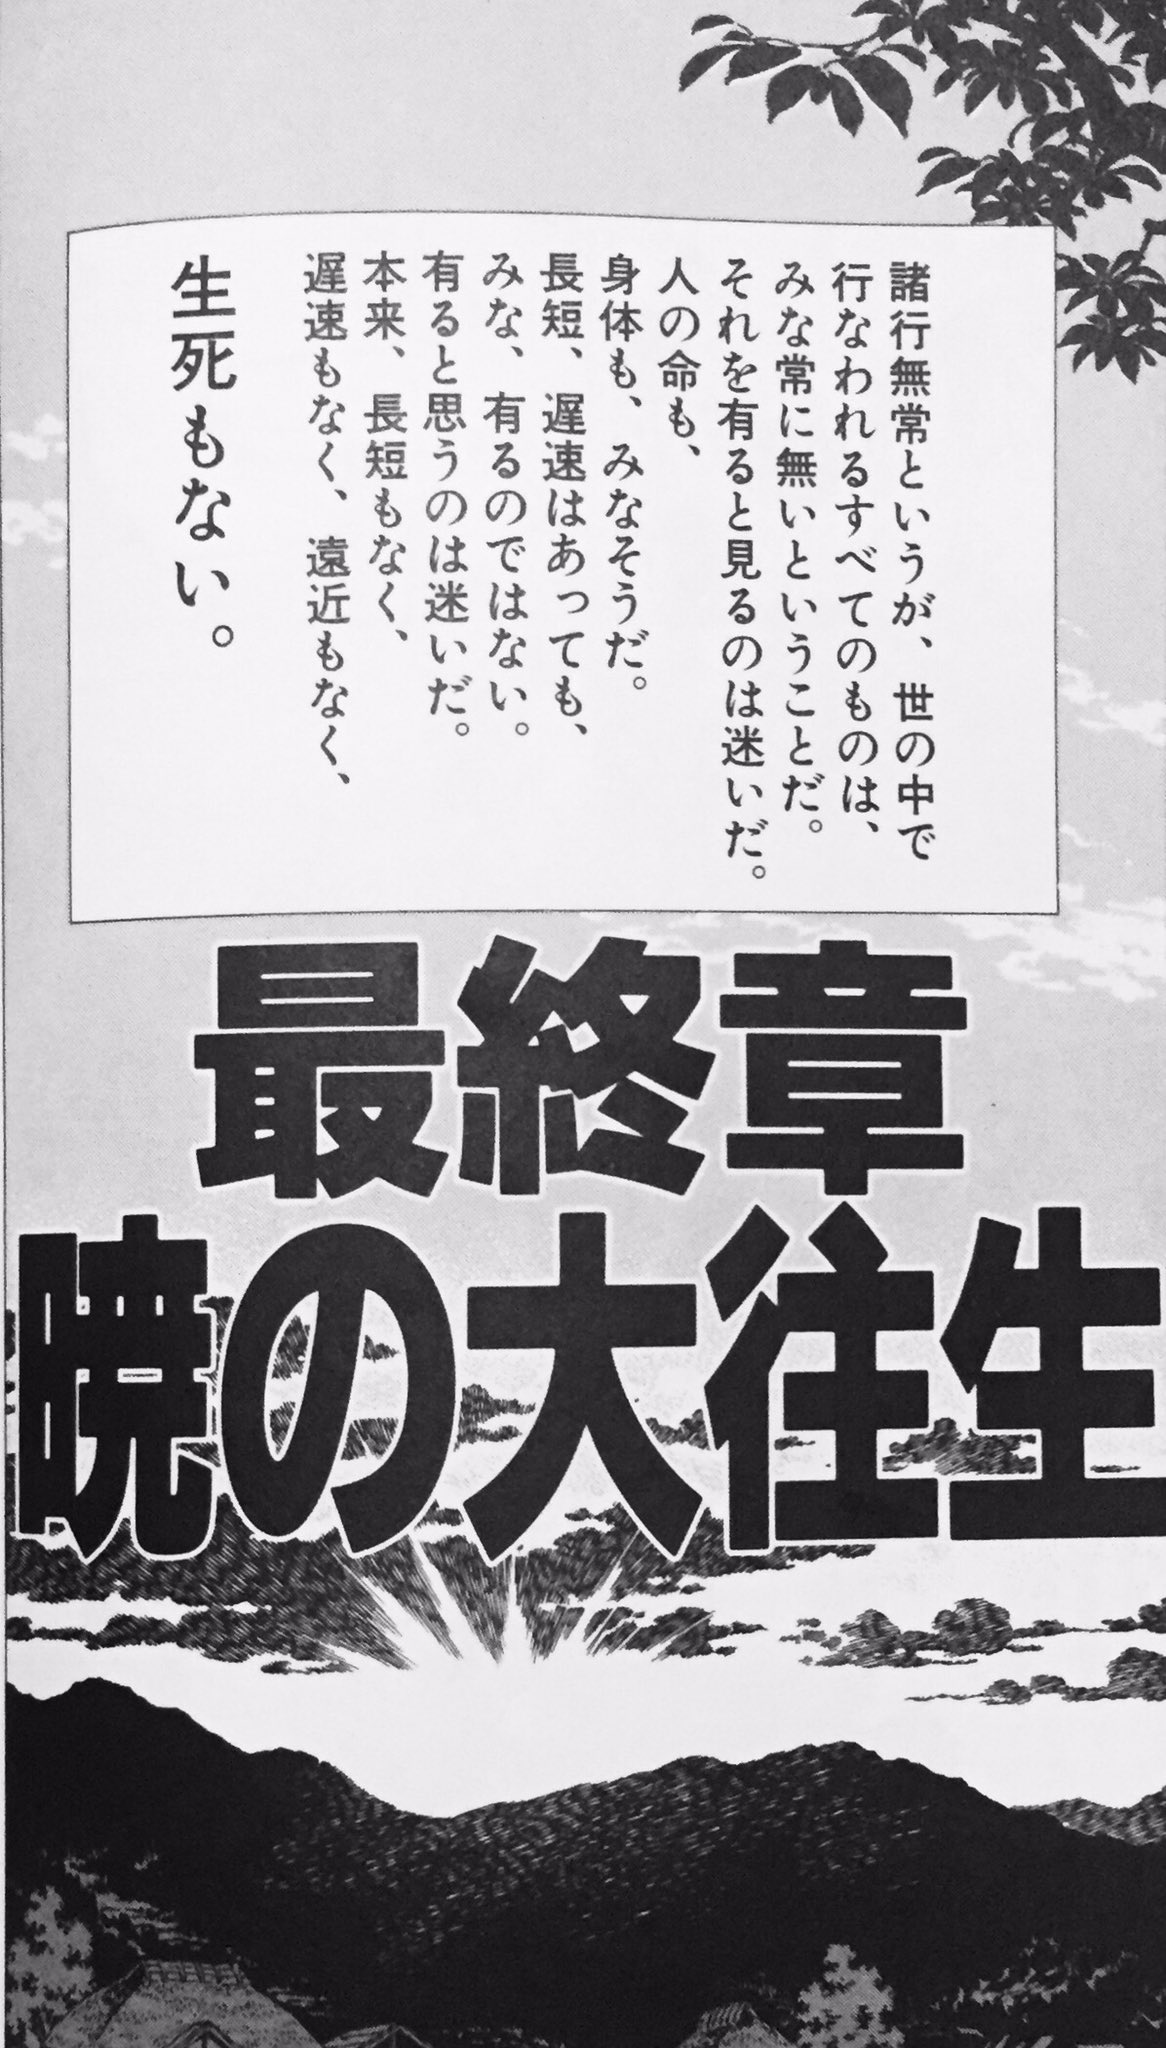 諸行無常というが、世の中で
行なわれるすべてのものは、
みな常に無いということだ。
それを有ると見るのは迷いだ。
人の命も、
身体も、みなそうだ。
長短、遅速はあっても、
みな、有るのではない。
有ると思うのは迷いだ。
本来、長短もなく、
遅速もなく、遠近もなく、
生死もない。
最終章
暁の大往生